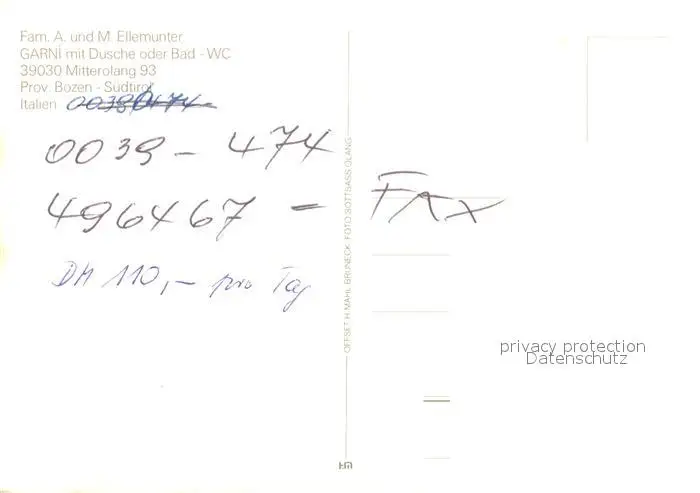 Fam. A. und M. Ellemunter
GARNI mit Dusche oder Bad - WC
39030 Mitterolang 93
Prov. Bozen - Südtirol
Italien 0039 0474
0039 - 474
496467 - FAX
DM 110,- pro Tag
OFFSET H. MAHL BRUNECK FOTO SOTTSASS OLANG
privacy protection
Datenschutz